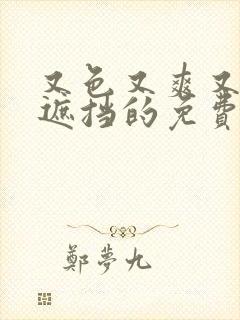 又色又爽又
遮挡的免费
鄭夢九